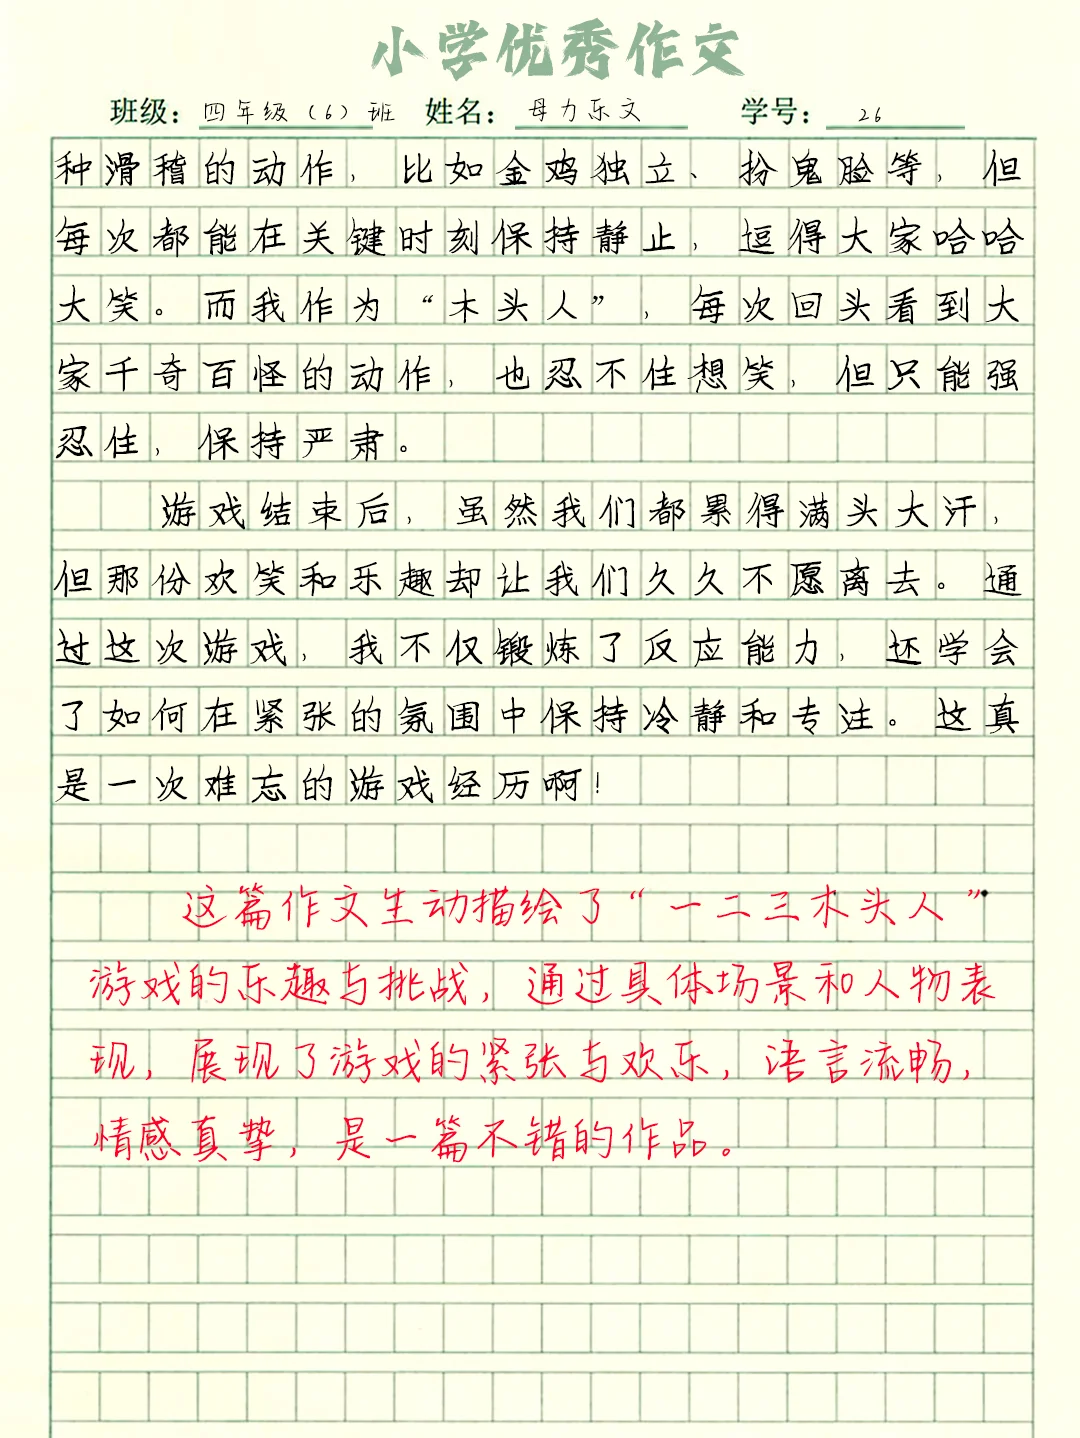 小学优秀作文
班级：四年级（6）班 姓名：母力乐文 学号：26
种滑稽的动作，比如金鸡独立、扮鬼脸等，但
每次都能在关键时刻保持静止，逗得大家哈哈
大笑。而我作为“木头人”，每次回头看到大
家千奇百怪的动作，也忍不住想笑，但只能强
忍住，保持严肃。
游戏结束后，虽然我们都累得满头大汗，
但那份欢笑和乐趣却让我们久久不愿离去。通
过这次游戏，我不仅锻炼了反应能力，还学会
了如何在紧张的氛围中保持冷静和专注。这真
是一次难忘的游戏经历啊！
这篇作文生动描绘了“一二三木头人”
游戏的乐趣与挑战，通过具体场景和人物表
现，展现了游戏的紧张与欢乐，语言流畅，
情感真挚，是一篇不错的作品。